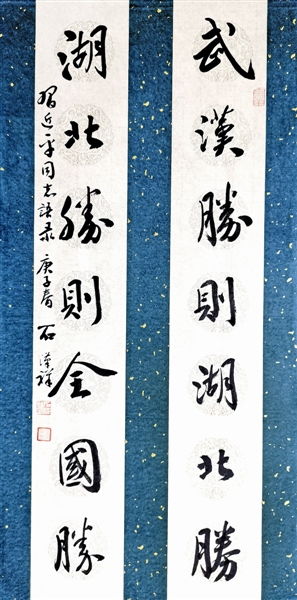 武漢勝則湖北勝
湖北勝則全國勝
習近平同志語录 庚子春 石漢祥